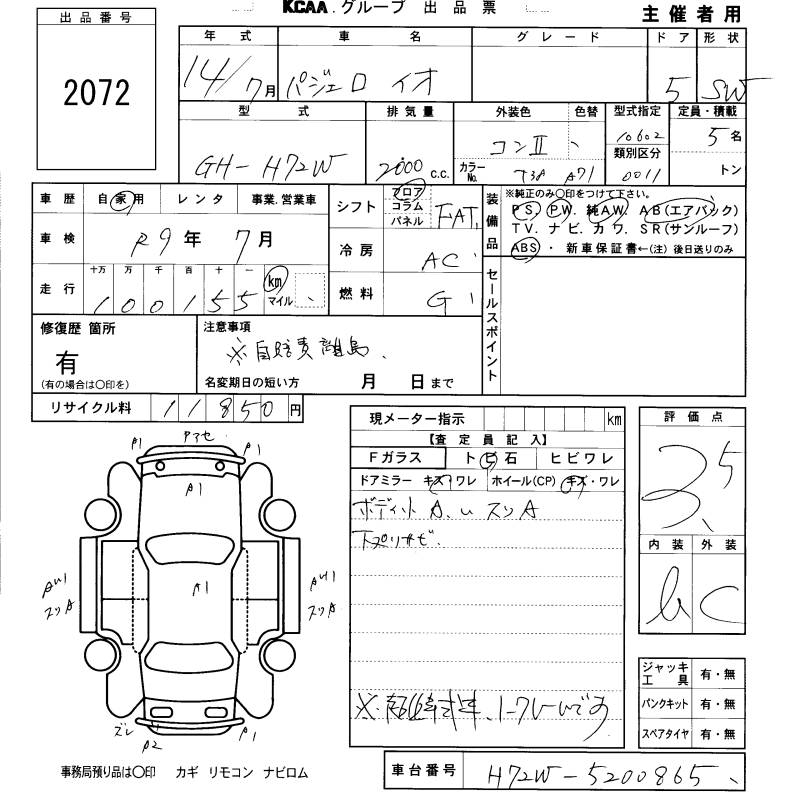 KCAA.グループ 出品票
主催者用
出品番号
2072
年式 車名 グレード ドア 形状
14/7月 パジェロ イオ 5 SW
型式 排気量 外装色 色替 型式指定 定員・積載
GH-H72W 2000 c.c. コンⅡ 10602 5名
カラーNo. T38 A71 類別区分 0011 トン
車歴 自家用 レンタ 事業.営業車
車検 R9年 7月
走行 十万 万 千 百 十 一
100155 km マイル
シフト フロア コラム パネル FAT
冷房 AC
燃料 G
装備品
※純正のみ〇印をつけて下さい。
PS. PW. 純AW. AB(エアバック)
TV. ナビ. カワ. SR(サンルーフ)
ABS ・ 新車保証書←(注) 後日送りのみ
セールスポイント
修復歴 箇所
有
(有の場合は〇印を)
注意事項
※自賠責離島
名変期日の短い方 月 日まで
リサイクル料 11850円
現メーター指示 km
【査定員記入】
Fガラス トビ石 ヒビワレ
ドアミラー キズ・ワレ ホイール(CP) キズ・ワレ
ボディ小A.U スリA
下プリサビ.
評価点
3.5
内装 外装
b C
A1 A1
A1
A1
AU1 スリA
AU1 スリA
ズレ A2 A1
ジャッキ工具 有・無
パンクキット 有・無
スペアタイヤ 有・無
事務局預り品は〇印 カギ リモコン ナビロム
車台番号 H72W-5200865